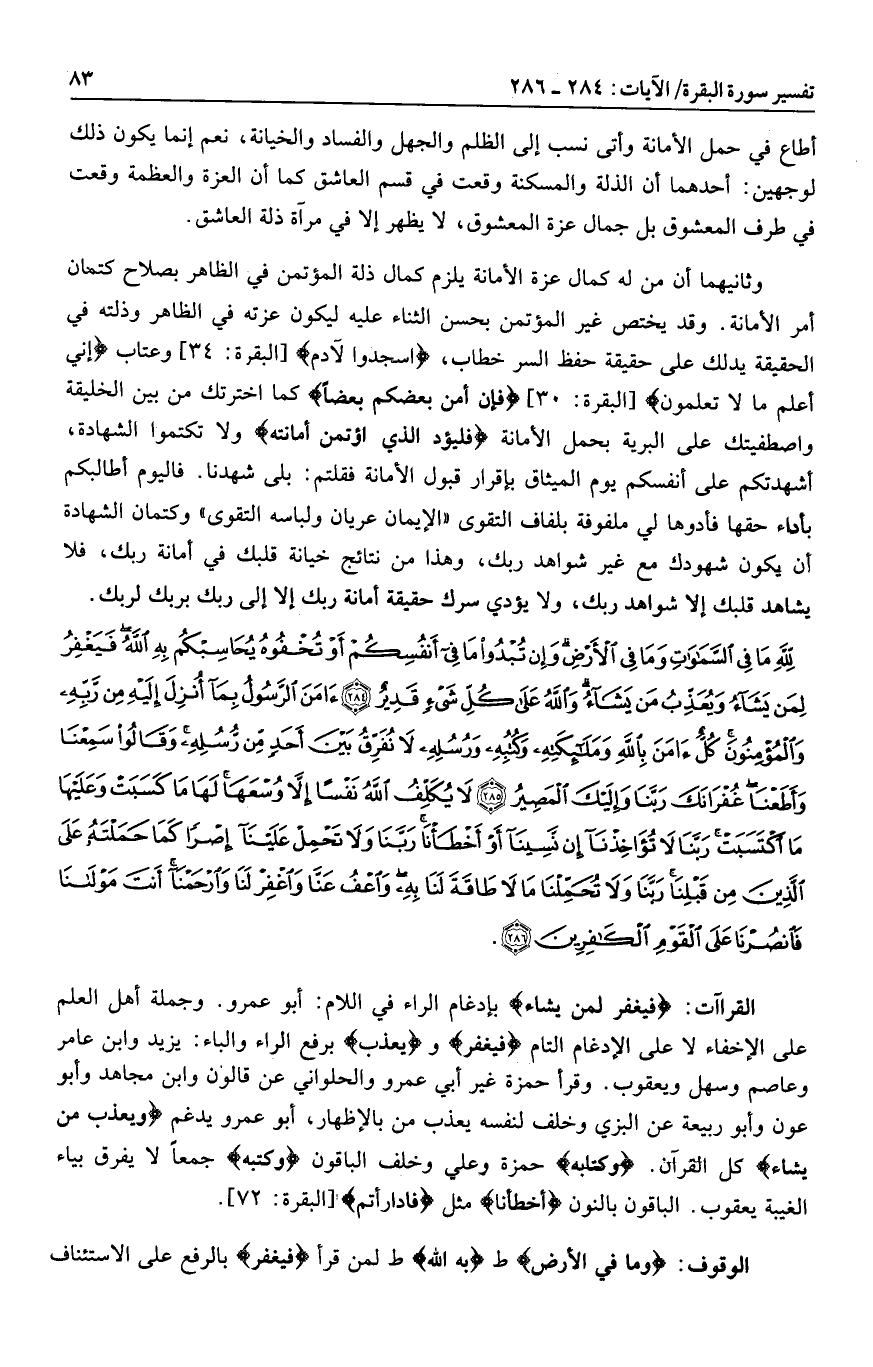 تفسير سورة البقرة/ الآيات: ٢٨٤ - ٢٨٦
٨٣
أطاع في حمل الأمانة وأتى نسب إلى الظلم والجهل والفساد والخيانة، نعم إنما يكون ذلك
لوجهين: أحدهما أن الذلة والمسكنة وقعت في قسم العاشق كما أن العزة والعظمة وقعت
في طرف المعشوق بل جمال عزة المعشوق، لا يظهر إلا في مرآة ذلة العاشق.
وثانيهما أن من له كمال عزة الأمانة يلزم كمال ذلة المؤتمن في الظاهر بصلاح كتمان
أمر الأمانة. وقد يختص غير المؤتمن بحسن الثناء عليه ليكون عزته في الظاهر وذلته في
الحقيقة يدلك على حقيقة حفظ السر خطاب، ﴿اسجدوا لآدم﴾ [البقرة: ٣٤] وعتاب ﴿إني
أعلم ما لا تعلمون﴾ [البقرة: ٣٠] ﴿فإن أمن بعضكم بعضاً﴾ كما اخترتك من بين الخليقة
واصطفيتك على البرية بحمل الأمانة ﴿فليؤد الذي اؤتمن أمانته﴾ ولا تكتموا الشهادة،
أشهدتكم على أنفسكم يوم الميثاق بإقرار قبول الأمانة فقلتم: بلى شهدنا. فاليوم أطالبكم
بأداء حقها فأدوها لي ملفوفة بلفاف التقوى «الإيمان عريان ولباسه التقوى» وكتمان الشهادة
أن يكون شهودك مع غير شواهد ربك، وهذا من نتائج خيانة قلبك في أمانة ربك، فلا
يشاهد قلبك إلا شواهد ربك، ولا يؤدي سرك حقيقة أمانة ربك إلا إلى ربك بربك لربك.
لِلَّهِ مَا فِى ٱلسَّمَـٰوَٰتِ وَمَا فِى ٱلْأَرْضِۗ وَإِن تُبْدُوا۟ مَا فِىٓ أَنفُسِكُمْ أَوْ تُخْفُوهُ يُحَاسِبْكُم بِهِ ٱللَّهُۖ فَيَغْفِرُ
لِمَن يَشَآءُ وَيُعَذِّبُ مَن يَشَآءُۗ وَٱللَّهُ عَلَىٰ كُلِّ شَىْءٍ قَدِيرٌ ﴿٢٨٤﴾ ءَامَنَ ٱلرَّسُولُ بِمَآ أُنزِلَ إِلَيْهِ مِن رَّبِّهِۦ
وَٱلْمُؤْمِنُونَۚ كُلٌّ ءَامَنَ بِٱللَّهِ وَمَلَـٰٓئِكَتِهِۦ وَكُتُبِهِۦ وَرُسُلِهِۦ لَا نُفَرِّقُ بَيْنَ أَحَدٍ مِّن رُّسُلِهِۦۚ وَقَالُوا۟ سَمِعْنَا
وَأَطَعْنَاۖ غُفْرَانَكَ رَبَّنَا وَإِلَيْكَ ٱلْمَصِيرُ ﴿٢٨٥﴾ لَا يُكَلِّفُ ٱللَّهُ نَفْسًا إِلَّا وُسْعَهَاۚ لَهَا مَا كَسَبَتْ وَعَلَيْهَا
مَا ٱكْتَسَبَتْۗ رَبَّنَا لَا تُؤَاخِذْنَآ إِن نَّسِينَآ أَوْ أَخْطَأْنَاۚ رَبَّنَا وَلَا تَحْمِلْ عَلَيْنَآ إِصْرًا كَمَا حَمَلْتَهُۥ عَلَى
ٱلَّذِينَ مِن قَبْلِنَاۚ رَبَّنَا وَلَا تُحَمِّلْنَا مَا لَا طَاقَةَ لَنَا بِهِۦۖ وَٱعْفُ عَنَّا وَٱغْفِرْ لَنَا وَٱرْحَمْنَآۚ أَنتَ مَوْلَىٰنَا
فَٱنصُرْنَا عَلَى ٱلْقَوْمِ ٱلْكَـٰفِرِينَ ﴿٢٨٦﴾.
القراآت: ﴿فيغفر لمن يشاء﴾ بإدغام الراء في اللام: أبو عمرو. وجملة أهل العلم
على الإخفاء لا على الإدغام التام ﴿فيغفر﴾ و ﴿يعذب﴾ برفع الراء والباء: يزيد وابن عامر
وعاصم وسهل ويعقوب. وقرأ حمزة غير أبي عمرو والحلواني عن قالون وابن مجاهد وأبو
عون وأبو ربيعة عن البزي وخلف لنفسه يعذب من بالإظهار، أبو عمرو يدغم ﴿ويعذب من
يشاء﴾ كل القرآن. ﴿وكتابه﴾ حمزة وعلي وخلف الباقون ﴿وكتبه﴾ جمعاً لا يفرق بياء
الغيبة يعقوب. الباقون بالنون ﴿أخطأنا﴾ مثل ﴿فادارأتم﴾ [البقرة: ٧٢].
الوقوف: ﴿وما في الأرض﴾ ط ﴿به الله﴾ ط لمن قرأ ﴿فيغفر﴾ بالرفع على الاستئناف